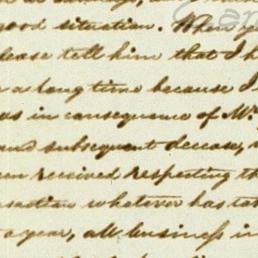 good situation. When
please tell him that I h
a long time because I
as in consequence of Mr
and subsequent decease,
en received respecting th
saction whatever has ta
a year, all business in